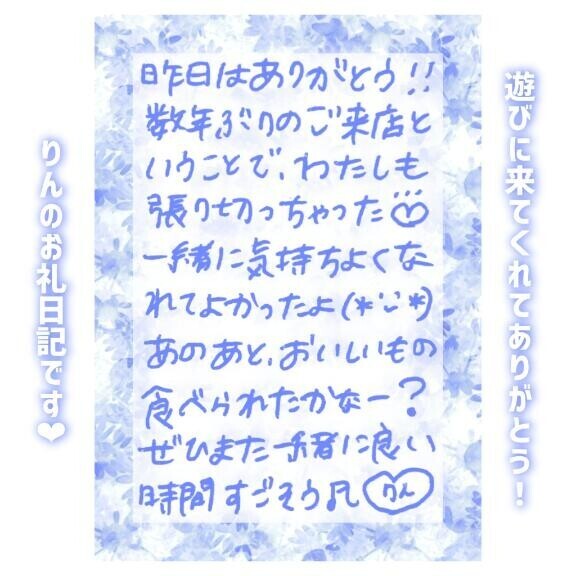 遊びに来てくれてありがとう！
昨日はありがとう!!
数年ぶりのご来店と
いうことで、わたしも
張り切っちゃった♡
一緒に気持ちよくな
れてよかったよ(*'ᵕ'*)
あのあと、おいしいもの
食べられたかなー？
ぜひまた一緒に良い
時間すごそう♫ りん
りんのお礼日記です❤